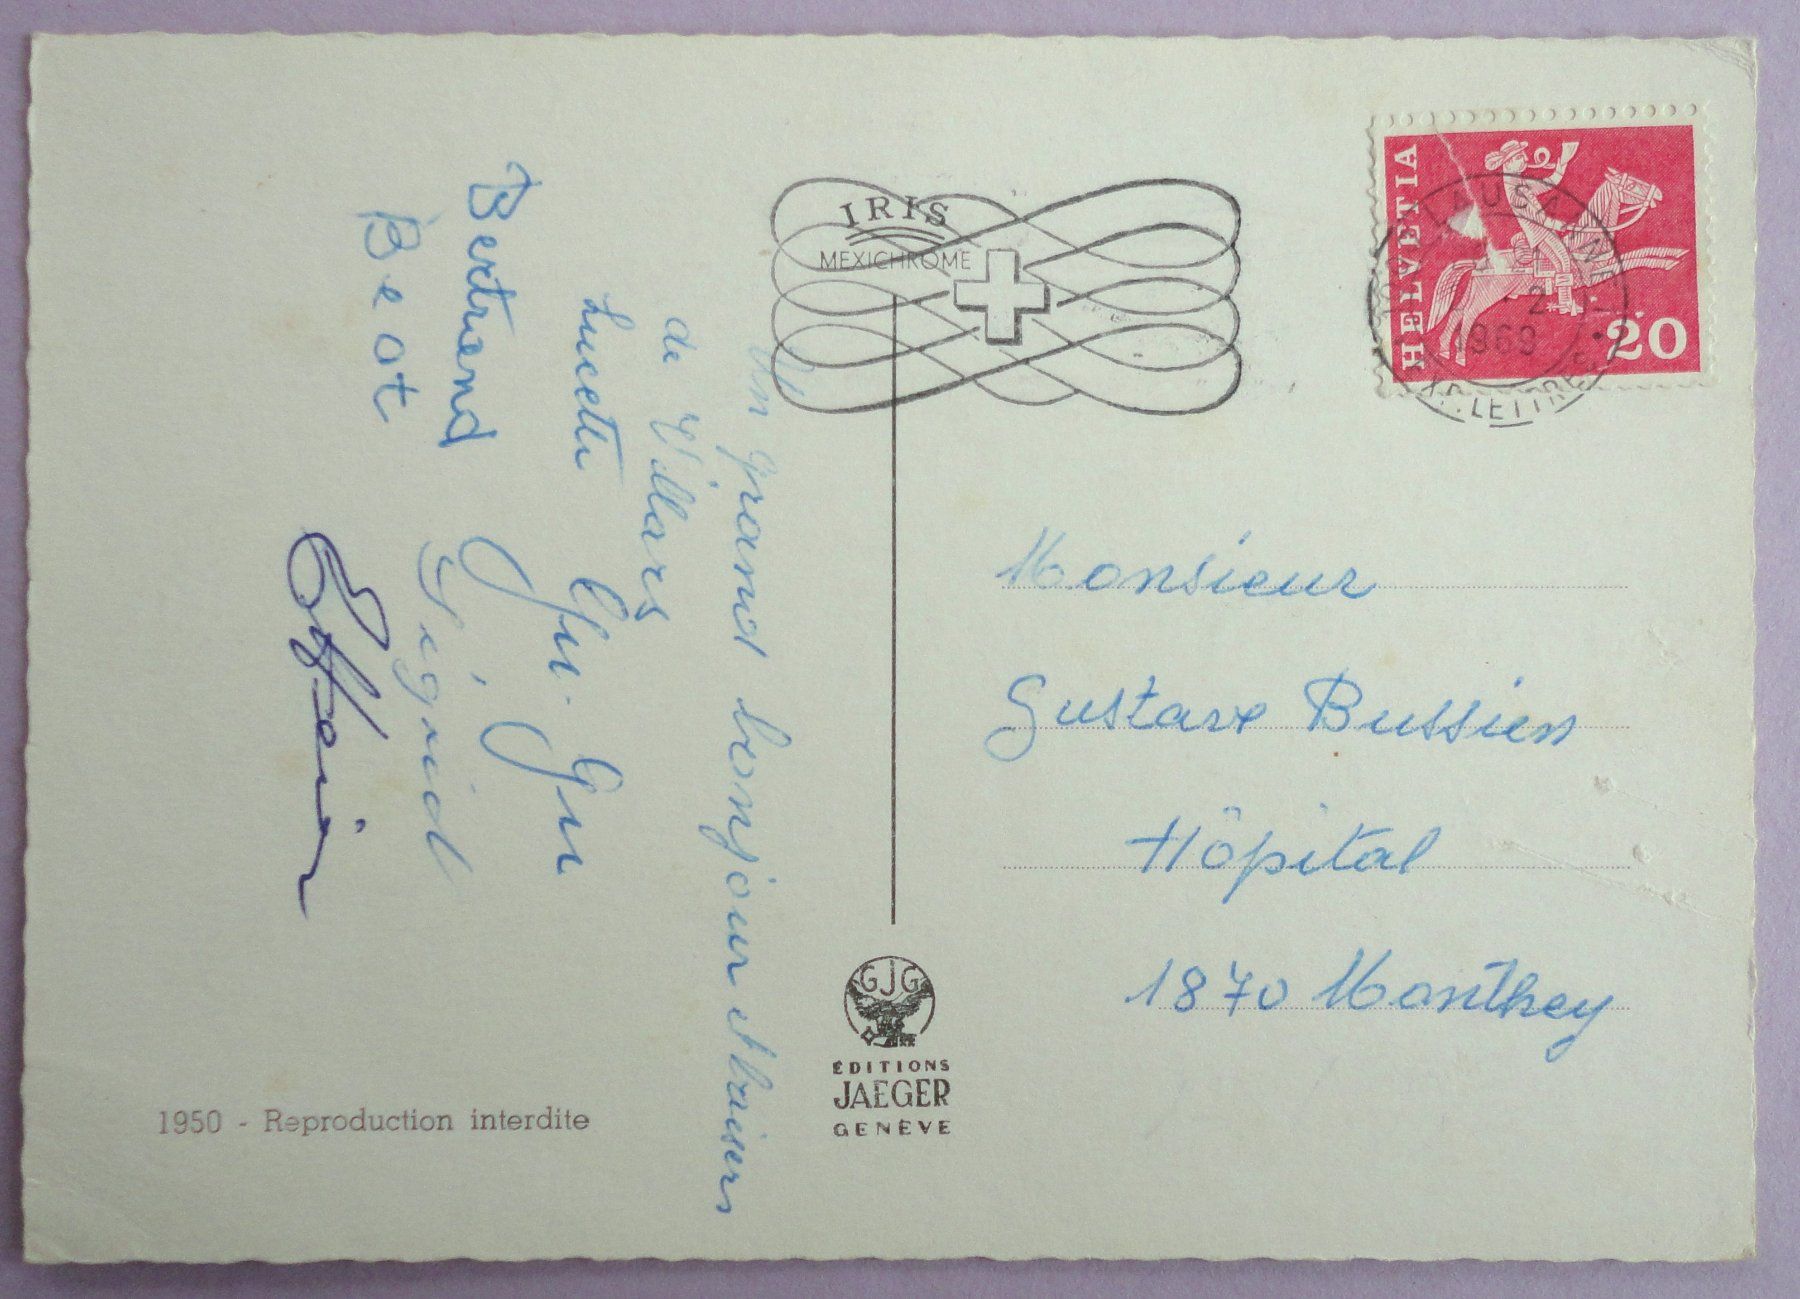 IRIS
MEXICHROME
HELVETIA
20
LAUSANNE
1969
EXP. LETTRES
Un grand bonjour et baisers
de Villars
Lucette
Bertrand
Beat
Monsieur
Gustave Bussien
Hôpital
1870 Monthey
GJG
ÉDITIONS
JAEGER
GENÈVE
1950 - Reproduction interdite